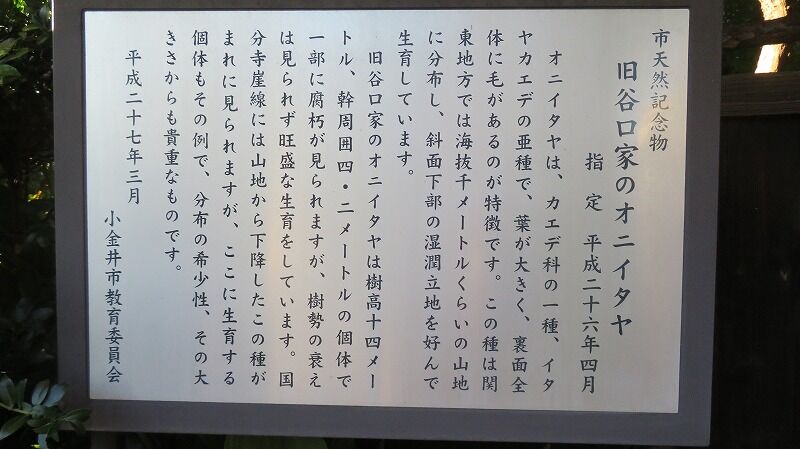 市天然記念物
旧谷口家のオニイタヤ
指定 平成二十六年四月
オニイタヤは、カエデ科の一種、イタ
ヤカエデの亜種で、葉が大きく、裏面全
体に毛があるのが特徴です。この種は関
東地方では海抜千メートルくらいの山地
に分布し、斜面下部の湿潤立地を好んで
生育しています。
旧谷口家のオニイタヤは樹高十四メー
トル、幹周囲四・二メートルの個体で
一部に腐朽が見られますが、樹勢の衰え
は見られず旺盛な生育をしています。国
分寺崖線には山地から下降したこの種が
まれに見られますが、ここに生育する
個体もその例で、分布の希少性、その大
きさからも貴重なものです。
平成二十七年三月
小金井市教育委員会